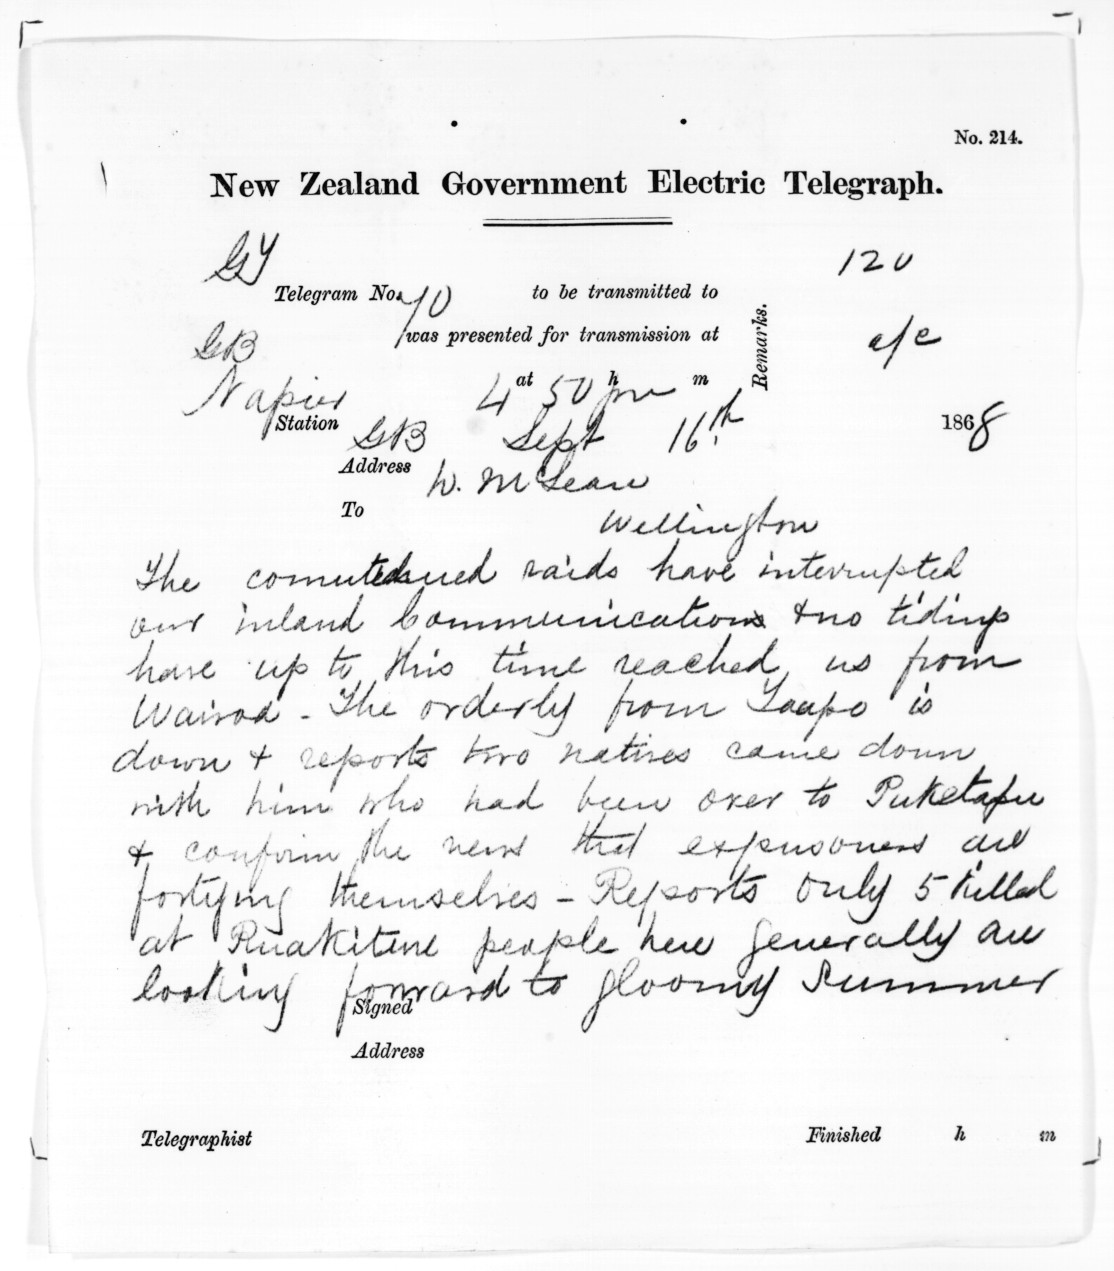 No. 214.
New Zealand Government Electric Telegraph.
GY
120
Telegram No. 70 to be transmitted to
was presented for transmission at
Remarks.
GB
a/c
Napier 4 at 50 h pm m
Station
GB Sept 16th 1868
Address
D. McLean
To
Wellington
The raids have interrupted
our inland Communications & no tidings
have up to this time reached us from
Wairoa - The orderly from Taupo is
down & reports two natives came down
with him who had been over to Puketapu
& confirm the news that exprisoners are
fortifying themselves - Reports only 5 killed
at Ruakiture people here generally are
looking forward to gloomy summer
Signed
Address
Telegraphist Finished h m